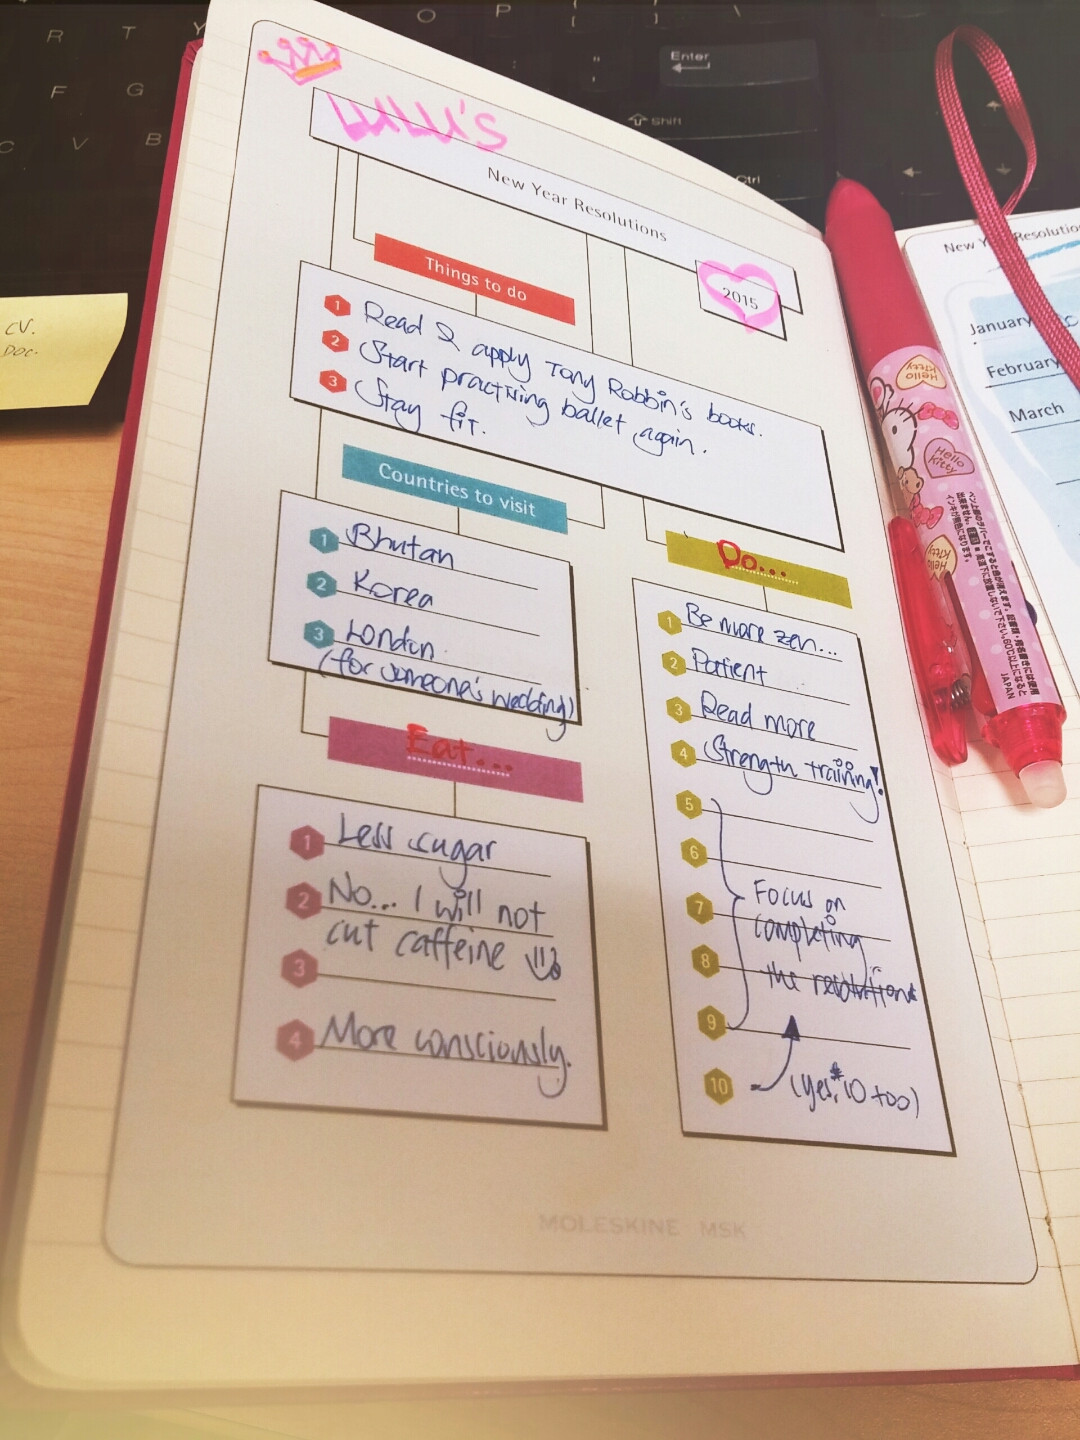 R T Y O P
F G
C V B
Enter
Shift
Ctrl
CV.
DOC.
LULU'S
New Year Resolutions
2015
Things to do
1 Read & apply Tony Robbin's books.
2 Start practising ballet again.
3 Stay fit.
Countries to visit
1 Bhutan
2 Korea
3 London
(for someone's wedding)
Eat...
1 Less sugar
2 No... I will not
cut caffeine
3
4 More consciously.
Do...
1 Be more zen...
2 Patient
3 Read more
4 Strength training!
5
6
7 Focus on
completing
8 the resolutions
9
10 (yes, #10 too)
MOLESKINE MSK
Hello Kitty
Hello Kitty
Hello Kitty
JAPAN
New Year Resolution
January
February
March